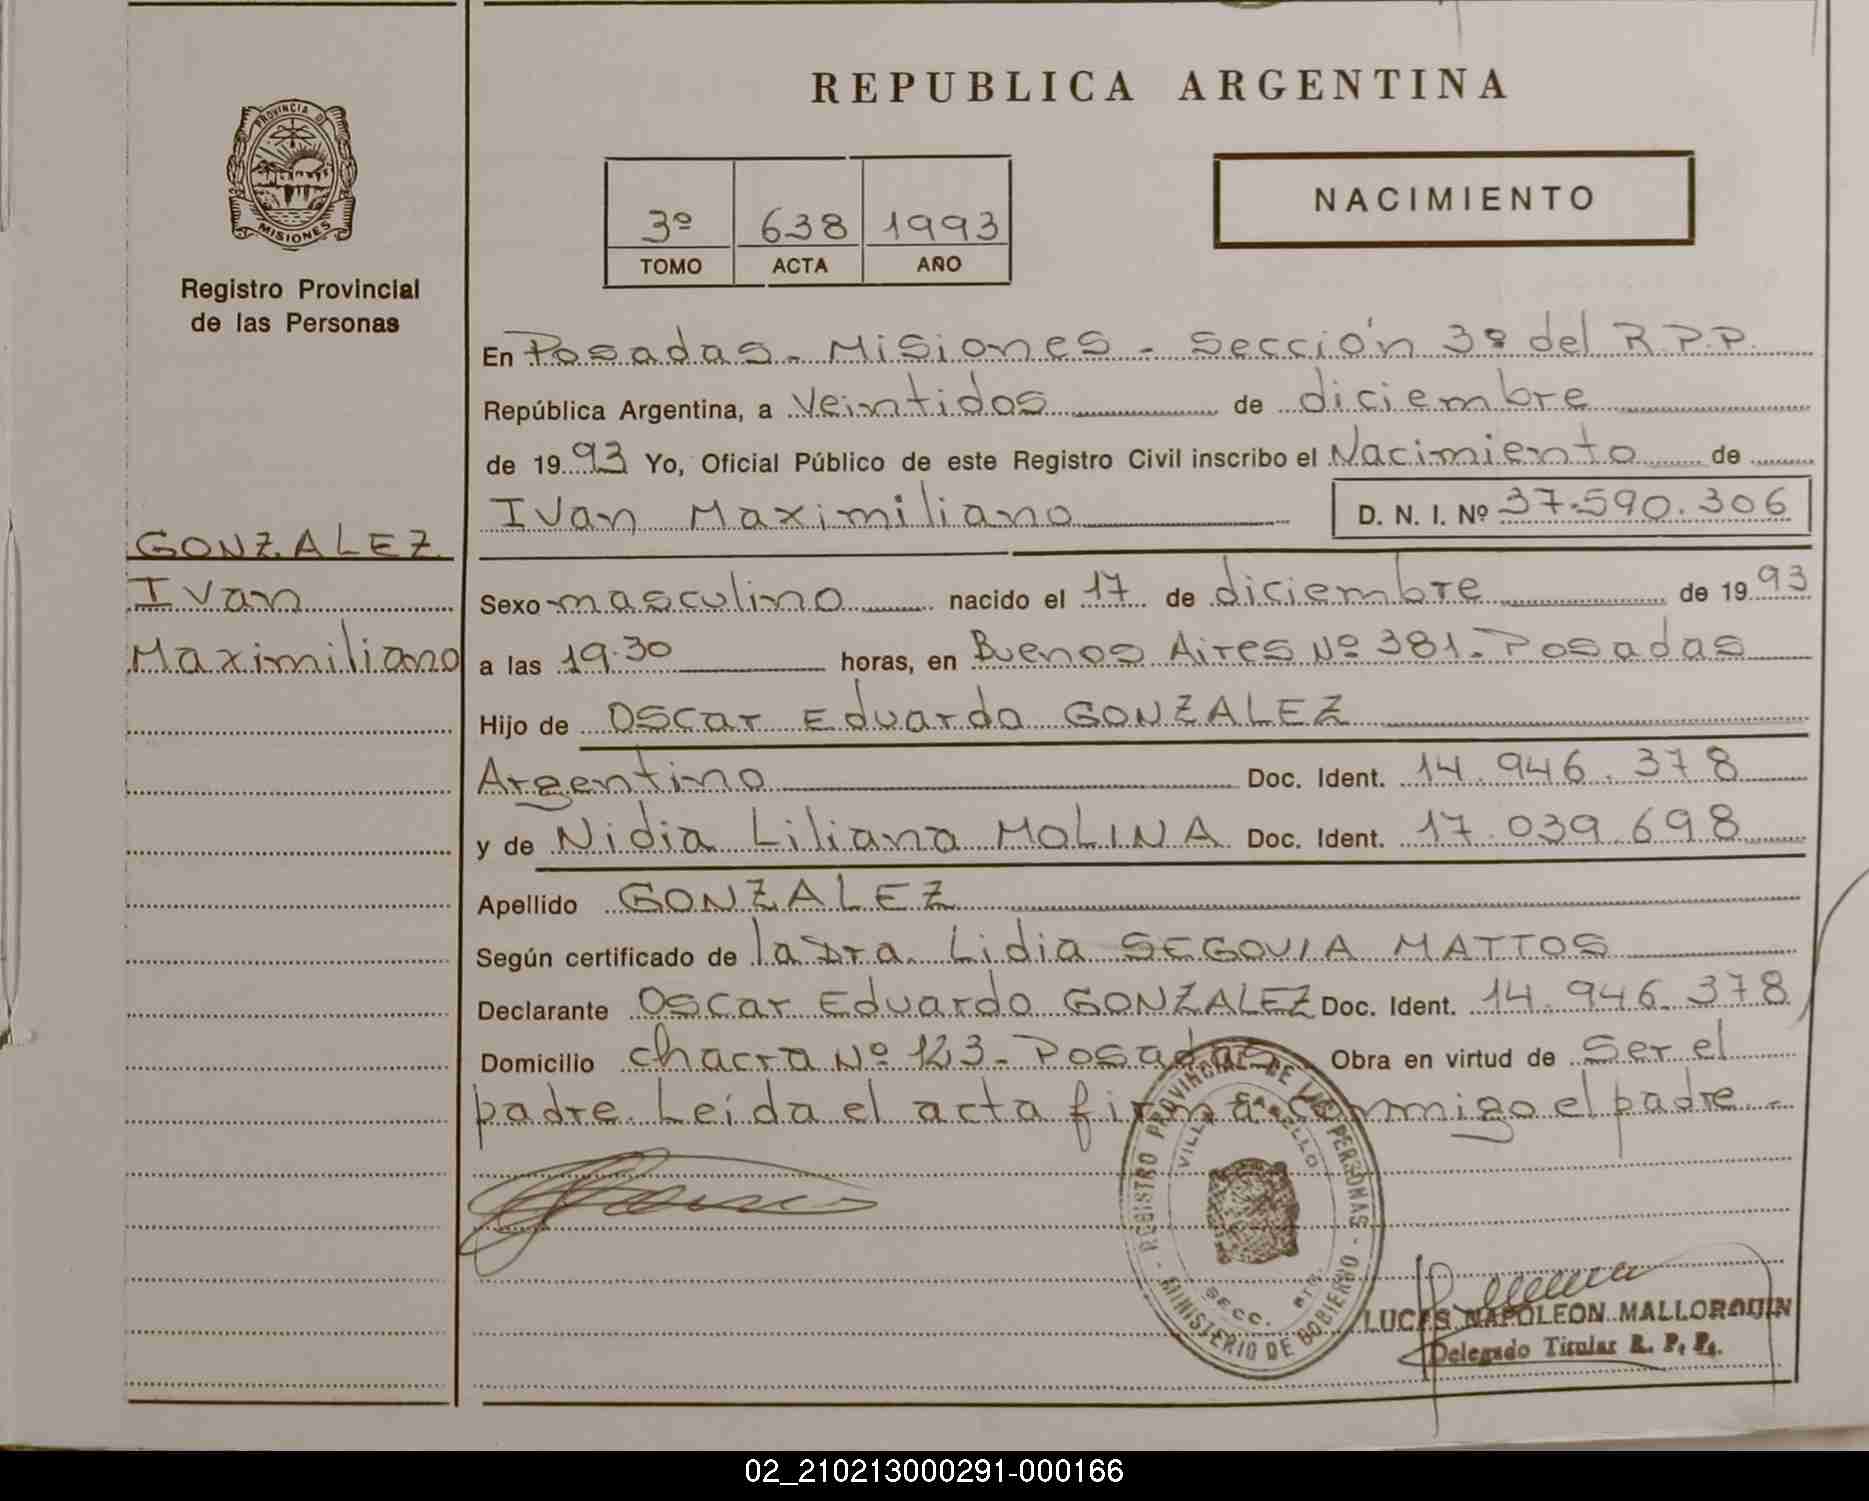 REPUBLICA ARGENTINA
PROVINCIA DE
MISIONES
Registro Provincial
de las Personas
3º 638 1993
TOMO ACTA AÑO
NACIMIENTO
GONZALEZ
Ivan
Maximiliano
En Posadas - Misiones - Sección 3º del R.P.P.
República Argentina, a veintidos de diciembre
de 1993 Yo, Oficial Público de este Registro Civil inscribo el Nacimiento de
Ivan Maximiliano D. N. I. Nº 37.590.306
Sexo masculino nacido el 17 de diciembre de 1993
a las 19.30 horas, en Buenos Aires Nº 381 - Posadas
Hijo de Oscar Eduardo GONZALEZ
Argentino Doc. Ident. 14.946.378
y de Nidia Liliana MOLINA Doc. Ident. 17.039.698
Apellido GONZALEZ
Según certificado de la Dra. Lidia SEGOVIA MATTOS
Declarante Oscar Eduardo GONZALEZ Doc. Ident. 14.946.378
Domicilio chacra Nº 123 - Posadas Obra en virtud de ser el
padre. Leída el acta firma conmigo el padre. -
REGISTRO PROVINCIAL DE LAS PERSONAS
MINISTERIO DE GOBIERNO
VILLA
SECC.
LUCAS NAPOLEON MALLORQUIN
Delegado Titular R. P. P.
02_210213000291-000166